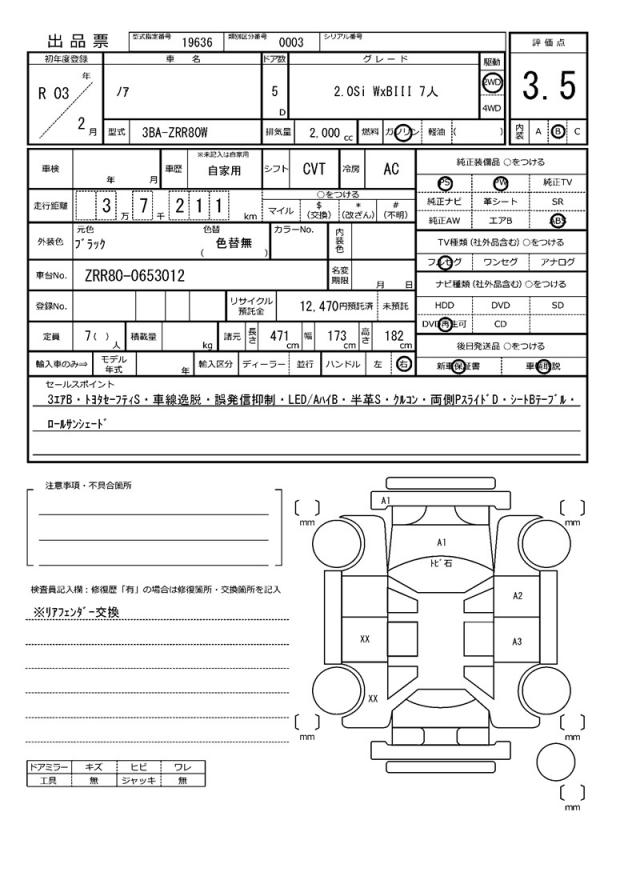 出品票
型式指定番号 19636 類別区分番号 0003 シリアル番号
評価点
3.5
内装 A B C
初年度登録 車名 ドア数 グレード 駆動
R 03 年 2 月
ノア
5 D
2.0Si WxBIII 7人
2WD
4WD
型式 3BA-ZRR80W 排気量 2,000 cc 燃料 ガソリン 軽油 ( )
車検 年 月 車歴 ※未記入は自家用 自家用 シフト CVT 冷房 AC
走行距離 3 万 7 千 2 1 1 km
○をつける
マイル $ (交換) * (改ざん) # (不明)
外装色 元色 ブラック 色替 ( 色替無 ) カラーNo. 内装色
車台No. ZRR80-0653012 名変期限 月 日
登録No. リサイクル預託金 12,470円預託済 未預託
定員 7( )人 積載量 kg 諸元 長さ 471 cm 幅 173 cm 高さ 182 cm
輸入車のみ⇒ モデル年式 年 輸入区分 ディーラー 並行 ハンドル 左 右
純正装備品 ○をつける
PS PW 純正TV
純正ナビ 革シート SR
純正AW エアB ABS
TV種類 (社外品含む) ○をつける
フルセグ ワンセグ アナログ
ナビ種類 (社外品含む) ○をつける
HDD DVD SD
DVD再生可 CD
後日発送品 ○をつける
新車保証書 車輌取説
セールスポイント
3エアB・トヨタセーフティS・車線逸脱・誤発信抑制・LED/AハイB・半革S・クルコン・両側PスライドD・シートBテーブル・
ロールサンシェード
注意事項・不具合箇所
検査員記入欄：修復歴「有」の場合は修復箇所・交換箇所を記入
※リアフェンダー交換
ドアミラー キズ ヒビ ワレ
工具 無 ジャッキ 無
A1
mm
mm
A1
トビ石
A2
XX
A3
XX
mm
mm
mm